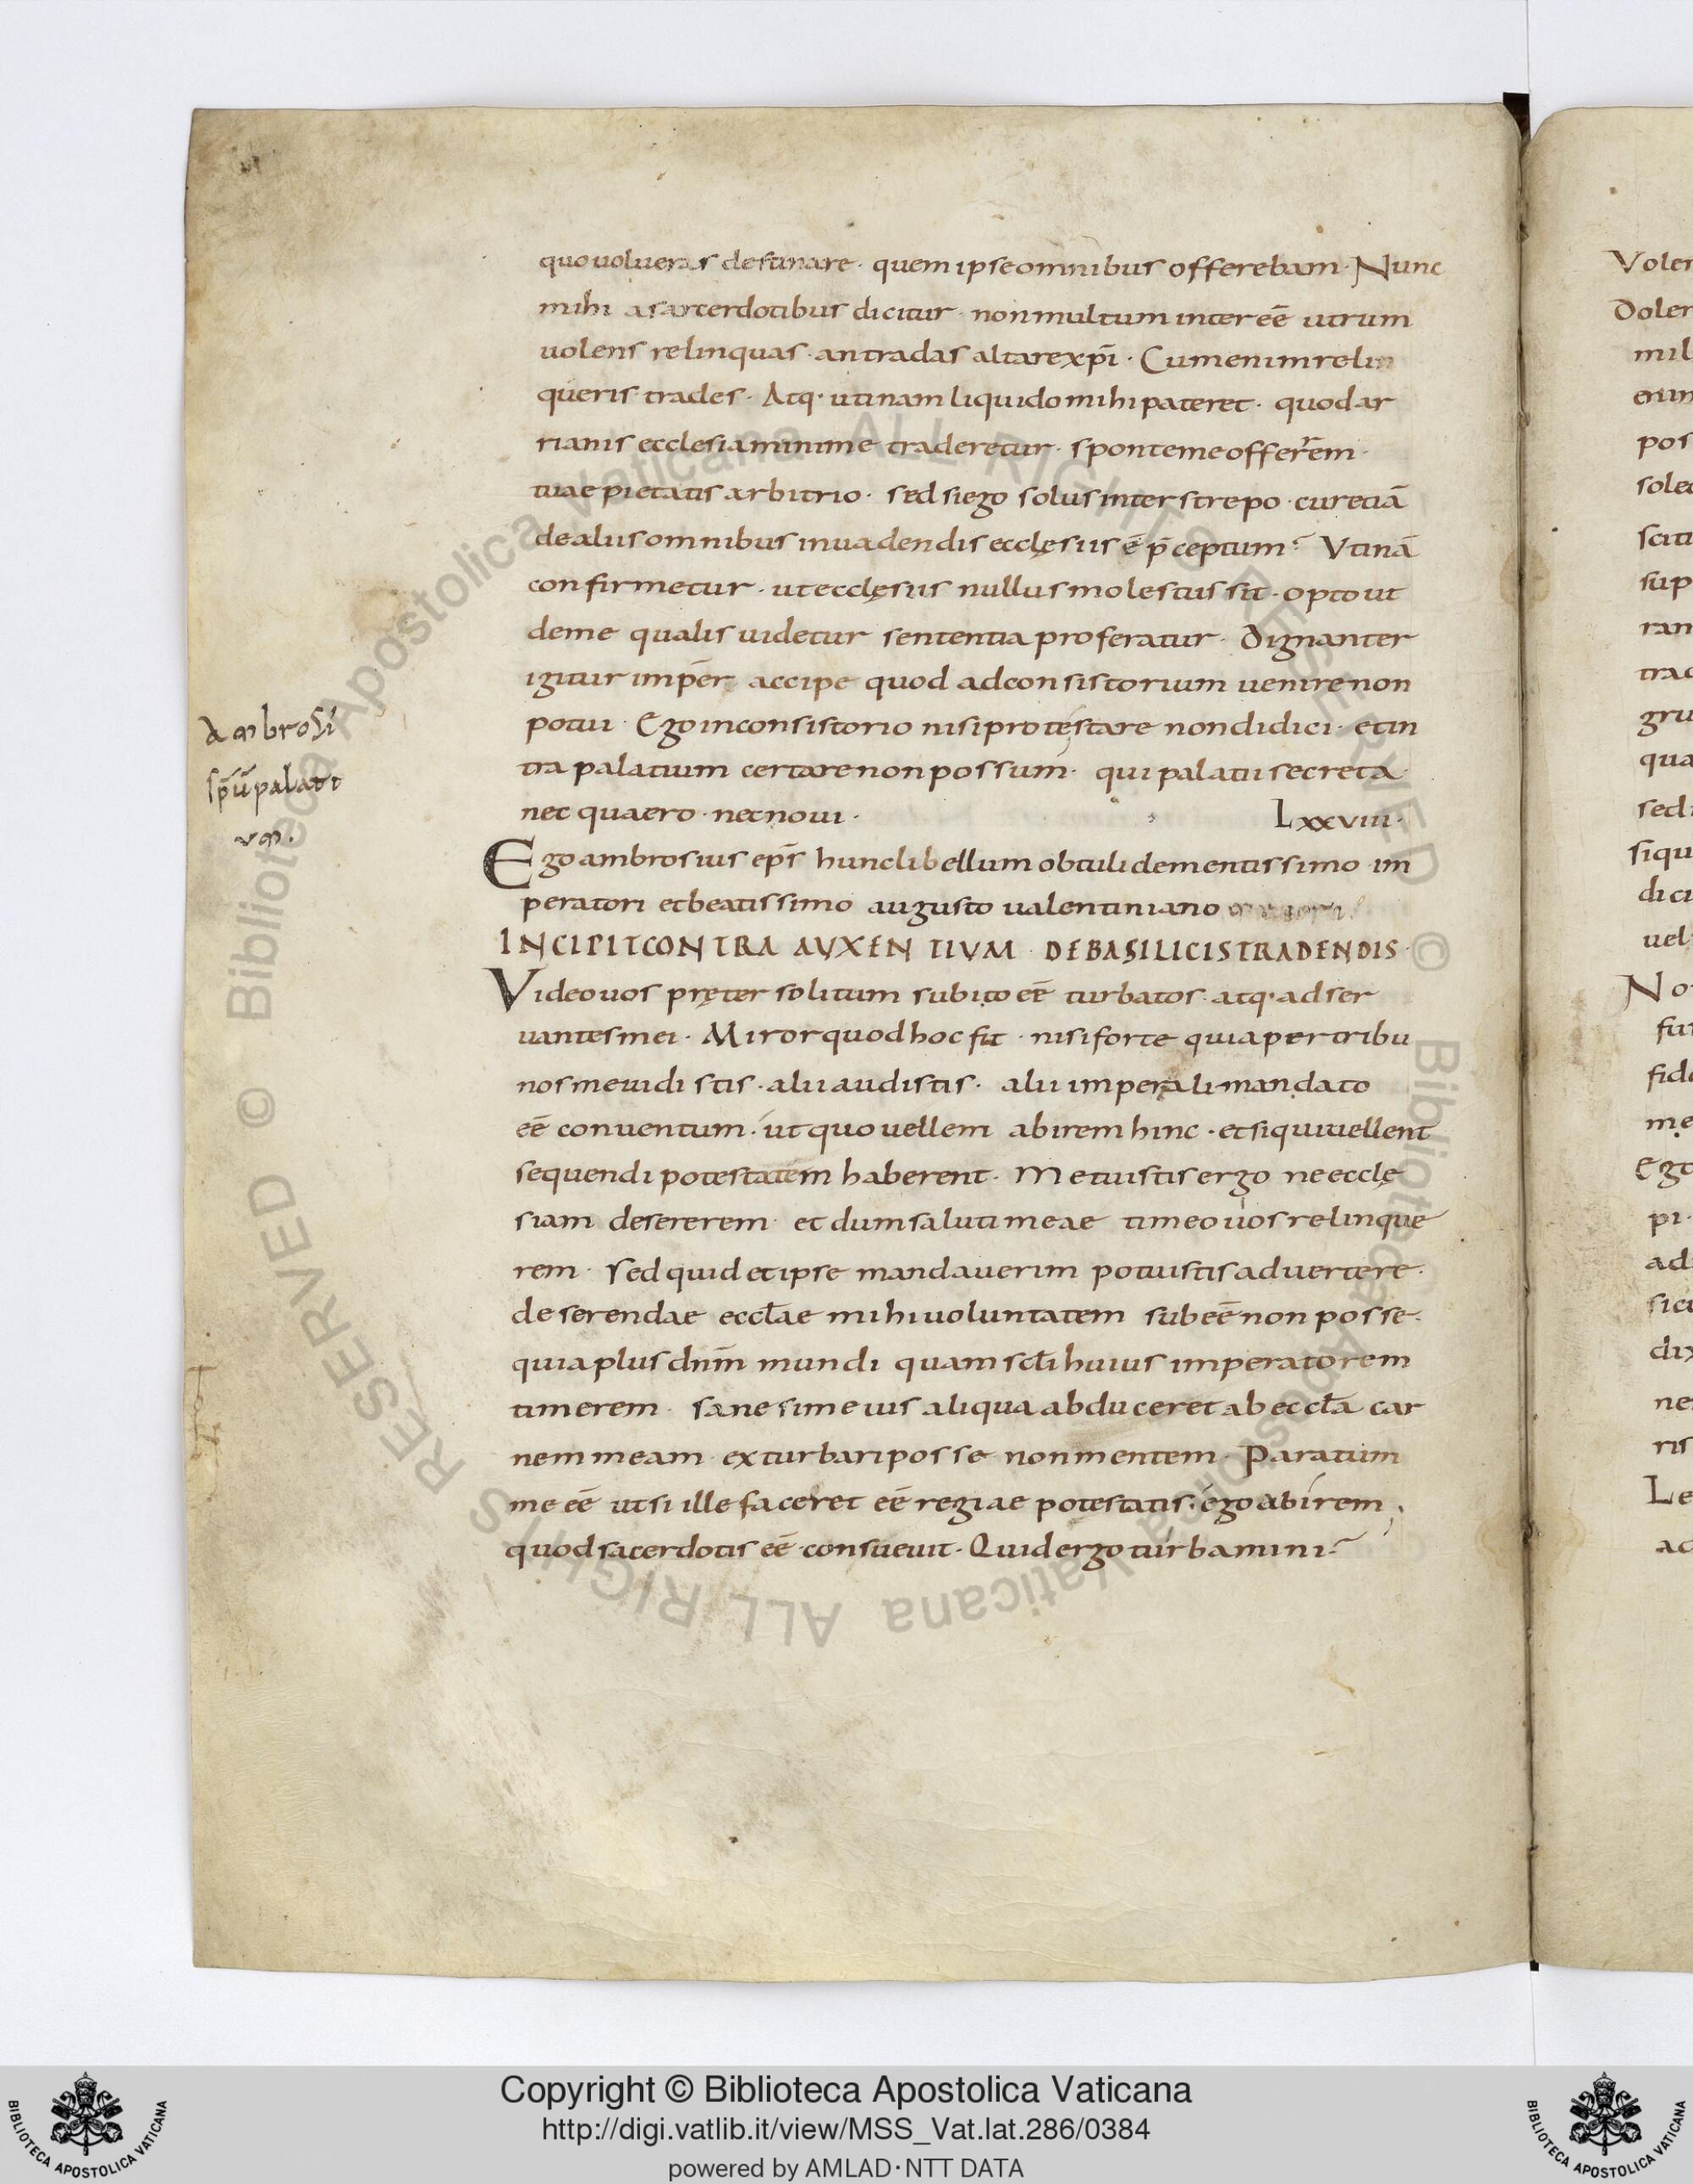 quo volueras destinare · quem ipse omnibus offerebam · Nunc
mihi a sacerdotibus dicitur · non multum inter eē utrum
uolens relinquas · an tradas altare xp̄i · Cum enim relin
queris trades · Atq· utinam liquido mihi pateret · quod ar
rianis ecclesia minime traderetur · sponte me offerrem ·
tuae pietatis arbitrio · sed si ego solus interstrepo · cur etiā
de aliis omnibus inuadendis ecclęsiis ē p̄ceptum? Vtinā
confirmetur · ut ecclęsiis nullus molestus sit · opto ut
de me qualis uidetur sententia proferatur · Dignanter
igitur imper̄ accipe quod ad consistorium uenire non
potui · Ego in consistorio nisi pro te stare non didici · et in
tra palatium certare non possum · qui palatii secreta ·
nec quaero · nec noui ·
Lxxviii ·
Ego ambrosius ep̄s hunc libellum obtuli clementissimo im
peratori et beatissimo augusto ualentiniano
INCIPIT CONTRA AUXENTIUM · DE BASILICIS TRADENDIS ·
Video uos pręter solitum subito eē turbatos · atq· adser
uantes mei · Miror quod hoc sit · nisi forte quia per tribu
nos me uidistis · alii audistis · alii imperali mandato
eē conuentum · ut quo uellem abirem hinc · et si qui uellent
sequendi potestatem haberent · Metuistis ergo ne ecclę
siam desererem · et dum saluti meae timeo uos relinque
rem · Sed quid et ipse mandauerim potuistis aduertere ·
deserendae eccl̄ae mihi uoluntatem subeē non posse ·
quia plus dn̄m mundi quam sc̄li huius imperatorem
timerem · sane si me uis aliqua abduceret ab eccl̄a car
nem meam exturbari posse non mentem · Paratum
me eē ut si ille faceret eē regiae potestatis · ego abirem,
quod sacerdotis eē consueuit · Quid ergo turbamini?
Ambrosi
sp̄ū palati
um.
Volen
Dolen
mil
pos
scit
sup
ran
trad
gru
qua
sed
siqu
dici
uel
No
fui
fide
me
Ego
pi ·
ad
sicu
dix
ne
ris
Le
ac
Copyright © Biblioteca Apostolica Vaticana
http://digi.vatlib.it/view/MSS_Vat.lat.286/0384
powered by AMLAD·NTT DATA
BIBLIOTECA APOSTOLICA VATICANA
BIBLIOTECA APOSTOLICA VATICANA
© Biblioteca Apostolica Vaticana ALL RIGHTS RESERVED © Biblioteca Apostolica Vaticana ALL RIGHTS RESERVED